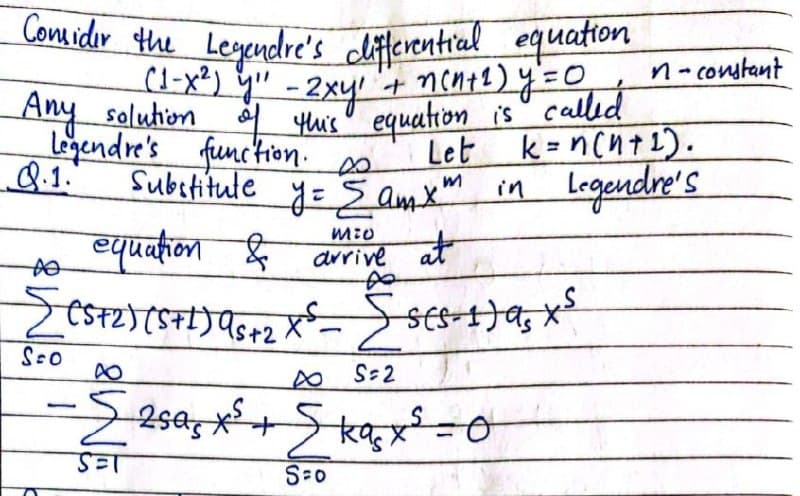 Consider the Legendre's differential equation
(1-x²) y'' - 2xy' + n(n+1) y = 0 , n - constant
Any solution of this equation is called
Legendre's function. Let k = n(n+1).
Q.1. Substitute y = ∞∑m=0 aₘxᵐ in Legendre's
equation & arrive at
∞∑s=0 (s+2)(s+1) aₛ₊₂ xˢ - ∞∑s=2 s(s-1) aₛ xˢ
- ∞∑s=1 2saₛ xˢ + ∞∑s=0 kaₛ xˢ = 0